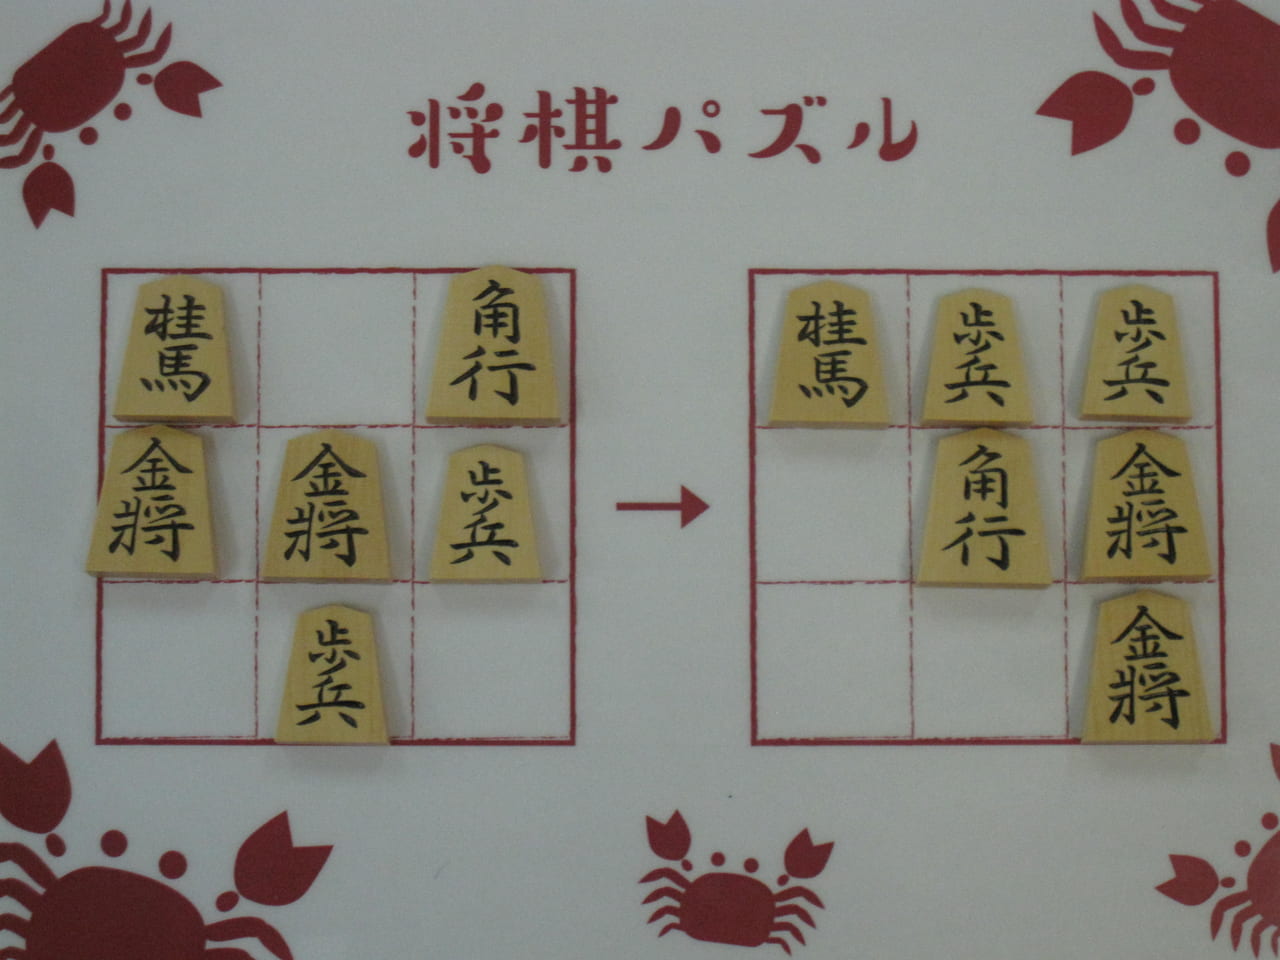 将棋パズル
桂馬 角行 桂馬 歩兵 歩兵
金将 金将 歩兵 角行 金将
歩兵 金将